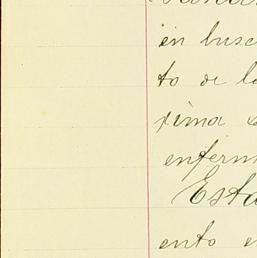 en busc
to de l
xima
enferm
Esta
ento e